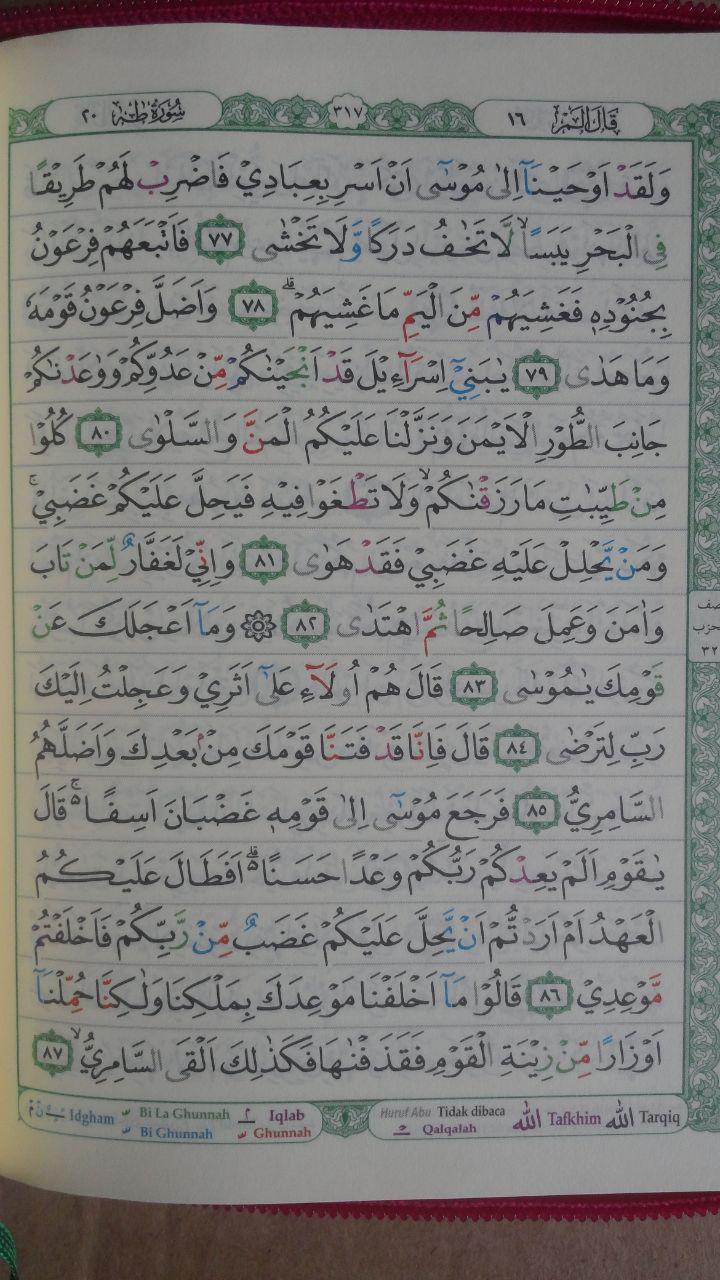 قَالَ اَلَمْ ١٦
٣١٧
سُوْرَةُ طٰهٰ ٢٠
وَلَقَدْ اَوْحَيْنَآ اِلٰى مُوْسٰٓى اَنْ اَسْرِ بِعِبَادِيْ فَاضْرِبْ لَهُمْ طَرِيْقًا
فِى الْبَحْرِ يَبَسًاۙ لَّا تَخٰفُ دَرَكًا وَّلَا تَخْشٰى ٧٧ فَاَتْبَعَهُمْ فِرْعَوْنُ
بِجُنُوْدِهٖ فَغَشِيَهُمْ مِّنَ الْيَمِّ مَا غَشِيَهُمْ ۗ ٧٨ وَاَضَلَّ فِرْعَوْنُ قَوْمَهٗ
وَمَا هَدٰى ٧٩ يٰبَنِيْٓ اِسْرَاۤءِيْلَ قَدْ اَنْجَيْنٰكُمْ مِّنْ عَدُوِّكُمْ وَوٰعَدْنٰكُمْ
جَانِبَ الطُّوْرِ الْاَيْمَنَ وَنَزَّلْنَا عَلَيْكُمُ الْمَنَّ وَالسَّلْوٰى ٨٠ كُلُوْا
مِنْ طَيِّبٰتِ مَا رَزَقْنٰكُمْۙ وَلَا تَطْغَوْا فِيْهِ فَيَحِلَّ عَلَيْكُمْ غَضَبِيْۚ
وَمَنْ يَّحْلِلْ عَلَيْهِ غَضَبِيْ فَقَدْ هَوٰى ٨١ وَاِنِّيْ لَغَفَّارٌ لِّمَنْ تَابَ
وَاٰمَنَ وَعَمِلَ صَالِحًا ثُمَّ اهْتَدٰى ٨٢ ۞ وَمَآ اَعْجَلَكَ عَنْ
قَوْمِكَ يٰمُوْسٰى ٨٣ قَالَ هُمْ اُولَاۤءِ عَلٰٓى اَثَرِيْ وَعَجِلْتُ اِلَيْكَ
رَبِّ لِتَرْضٰى ٨٤ قَالَ فَاِنَّا قَدْ فَتَنَّا قَوْمَكَ مِنْۢ بَعْدِكَ وَاَضَلَّهُمُ
السَّامِرِيُّ ٨٥ فَرَجَعَ مُوْسٰٓى اِلٰى قَوْمِهٖ غَضْبَانَ اَسِفًا ەۚ قَالَ
يٰقَوْمِ اَلَمْ يَعِدْكُمْ رَبُّكُمْ وَعْدًا حَسَنًا ەۗ اَفَطَالَ عَلَيْكُمُ
الْعَهْدُ اَمْ اَرَدْتُّمْ اَنْ يَّحِلَّ عَلَيْكُمْ غَضَبٌ مِّنْ رَّبِّكُمْ فَاَخْلَفْتُمْ
مَّوْعِدِيْ ٨٦ قَالُوْا مَآ اَخْلَفْنَا مَوْعِدَكَ بِمَلْكِنَا وَلٰكِنَّا حُمِّلْنَآ
اَوْزَارًا مِّنْ زِيْنَةِ الْقَوْمِ فَقَذَفْنٰهَا فَكَذٰلِكَ اَلْقَى السَّامِرِيُّۙ ٨٧
نصف
حزب
٣٢
Idgham Bi La Ghunnah Iqlab
Bi Ghunnah Ghunnah
Huruf Abu Tidak dibaca
Qalqalah
اللّٰه Tafkhim اللّٰه Tarqiq